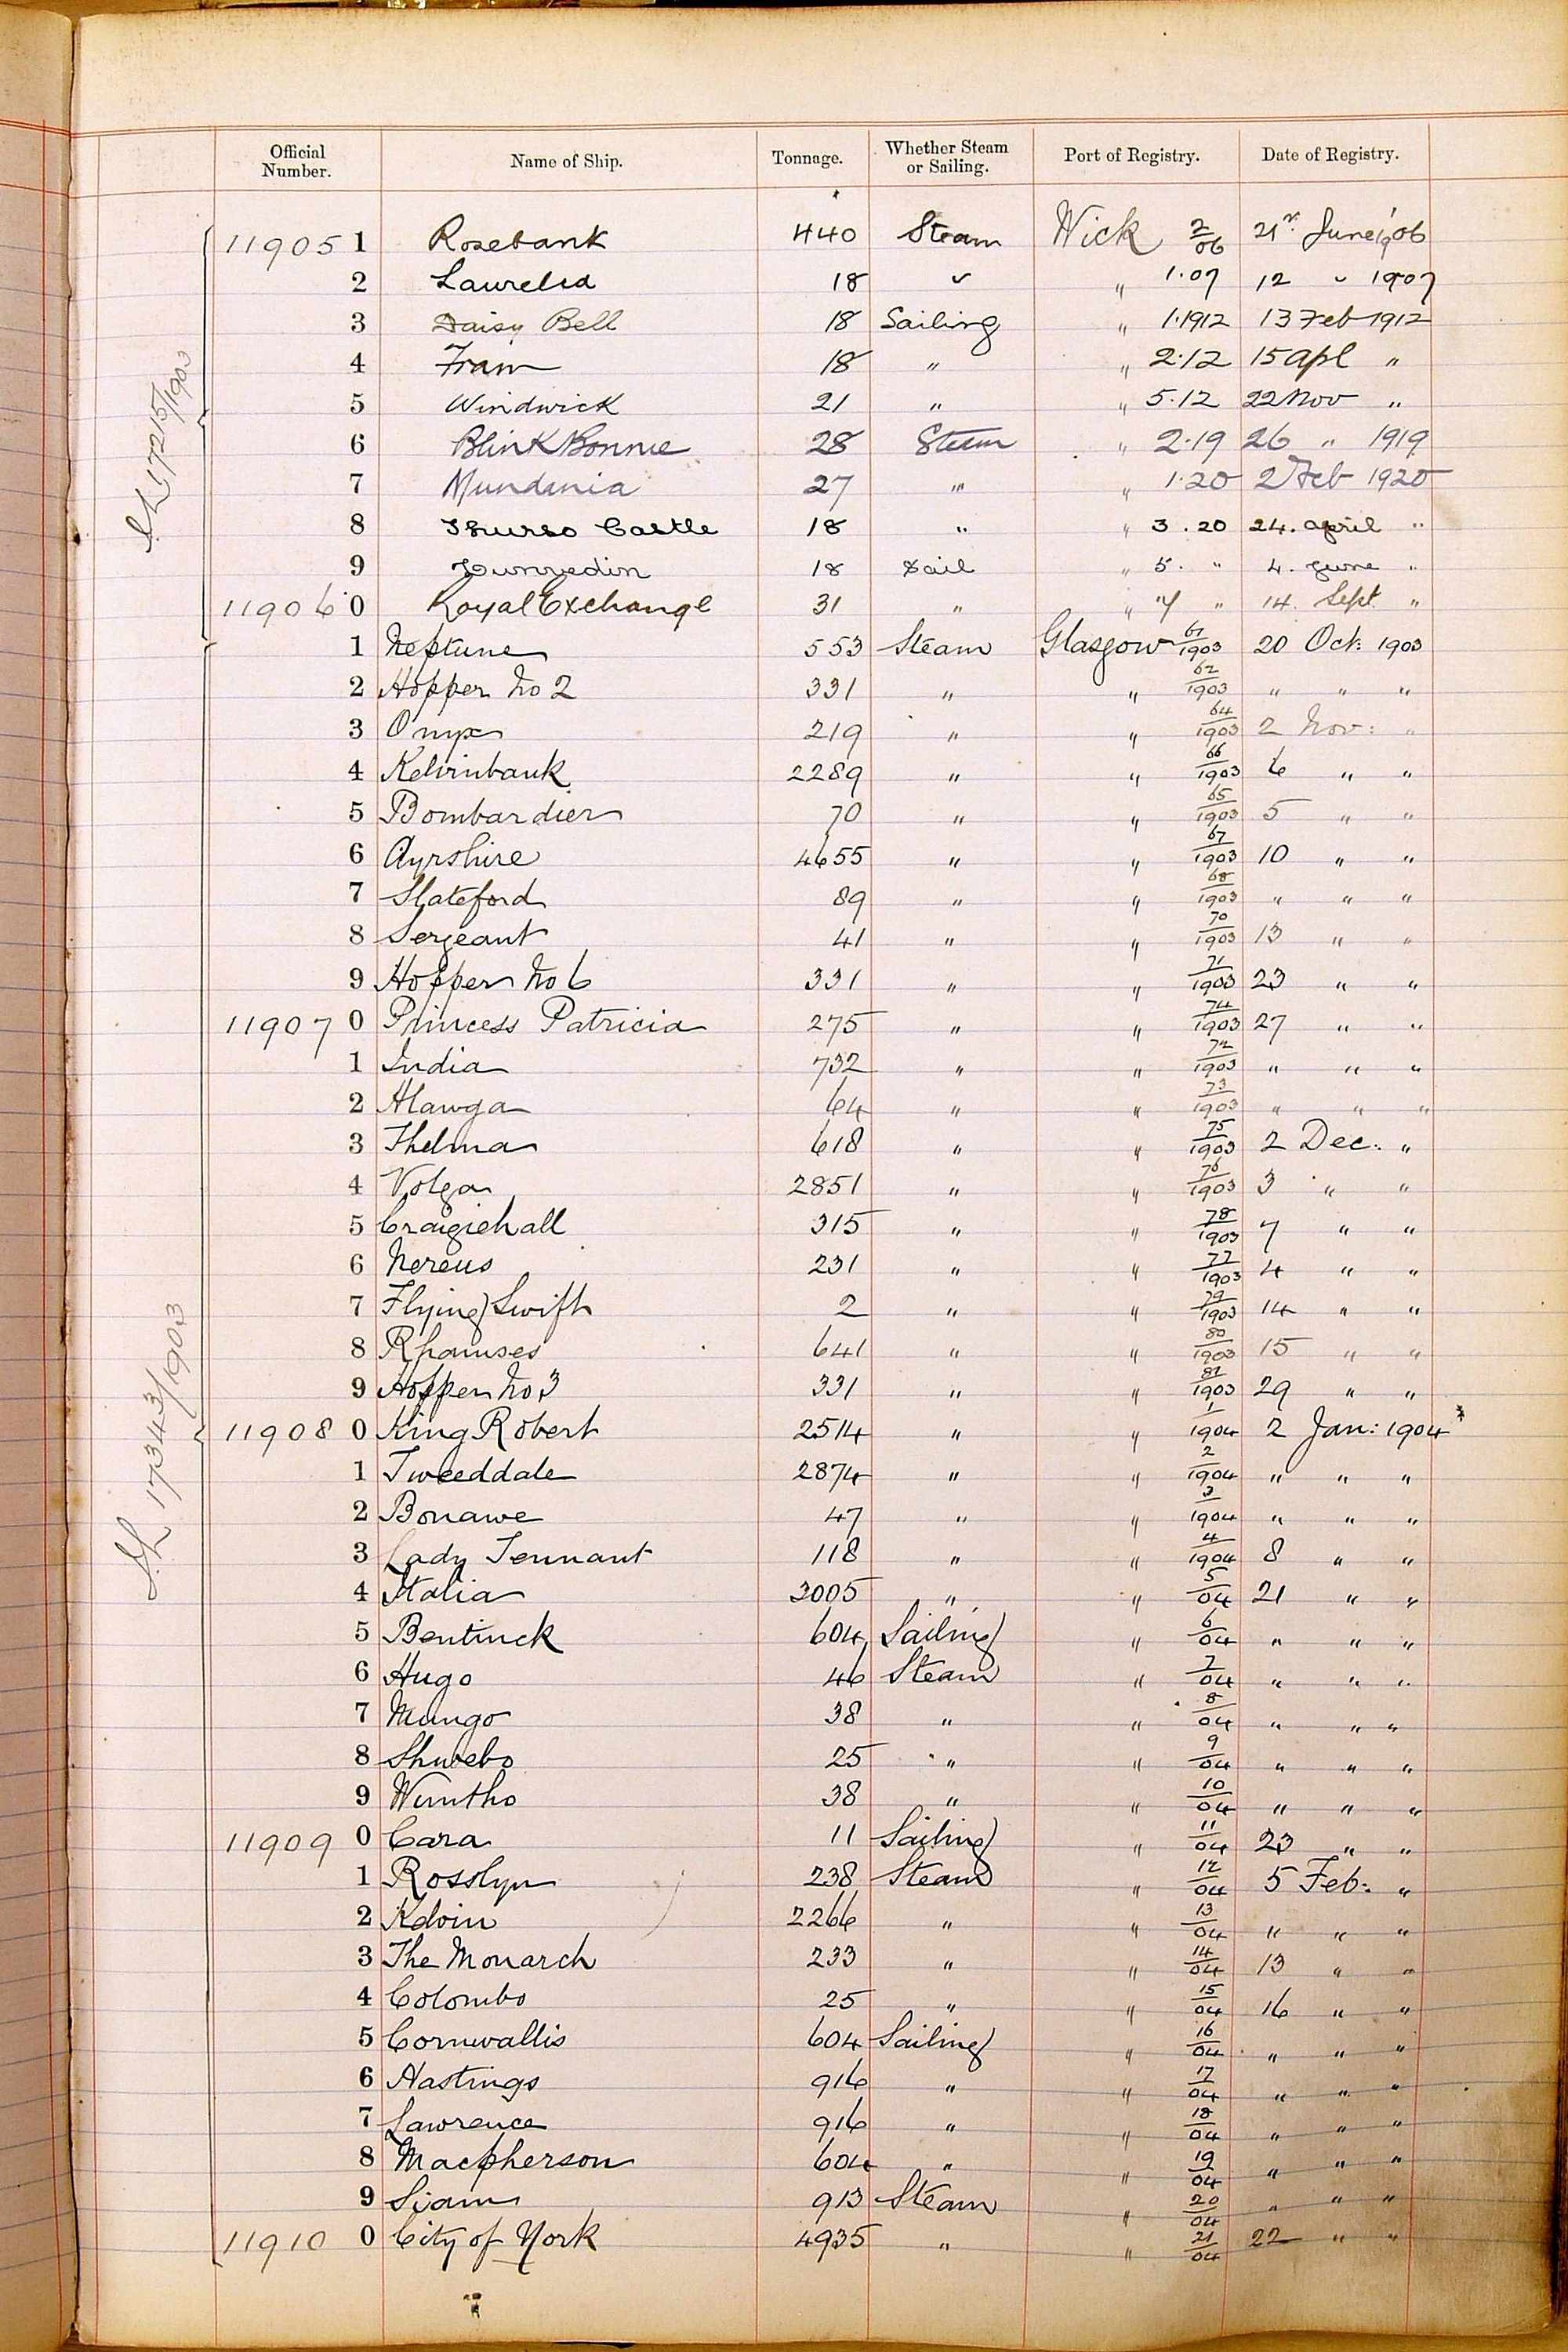 Official Number. Name of Ship. Tonnage. Whether Steam or Sailing. Port of Registry. Date of Registry.
11905 1 Rosebank 440 Steam Wick 2/06 21st June 1906
2 Laurelia 18 " " 1.07 12 " 1907
3 Daisy Bell 18 Sailing " 1.1912 13 Feb 1912
4 Fram 18 " " 2.12 15 Apl "
5 Windwick 21 " " 5.12 22 Nov "
6 Blink Bonnie 28 Steam " 2.19 26 " 1919
7 Mundania 27 " " 1.20 2 Feb 1920
8 Thurso Castle 18 " " 3.20 24. April "
9 Dunedin 18 Sail " 5. " 4. June "
11906 0 Royal Exchange 31 " " 7 " 14. Sept. "
1 Neptune 553 Steam Glasgow 61/1903 20 Oct: 1903
2 Hopper No 2 331 " " 62/1903 " " "
3 Onyx 219 " " 64/1903 2 Nov: "
4 Kelvinbank 2289 " " 66/1903 6 " "
5 Bombardier 70 " " 65/1903 5 " "
6 Ayrshire 4655 " " 67/1903 10 " "
7 Slateford 89 " " 68/1903 " " "
8 Sergeant 41 " " 70/1903 13 " "
9 Hopper No 6 331 " " 71/1903 23 " "
11907 0 Princess Patricia 275 " " 74/1903 27 " "
1 India 732 " " 72/1903 " " "
2 Alawga 64 " " 73/1903 " " "
3 Thelma 618 " " 75/1903 2 Dec: "
4 Volga 2851 " " 76/1903 3 " "
5 Craigiehall 315 " " 78/1903 7 " "
6 Nereus 231 " " 77/1903 4 " "
7 Flying Swift 2 " " 79/1903 14 " "
8 Rhamses 641 " " 80/1903 15 " "
9 Hopper No 3 331 " " 81/1903 29 " "
11908 0 King Robert 2514 " " 1/1904 2 Jan: 1904
1 Tweeddale 2874 " " 2/1904 " " "
2 Bonawe 47 " " 3/1904 " " "
3 Lady Tennant 118 " " 4/1904 8 " "
4 Italia 3005 " " 5/04 21 " "
5 Bentinck 604 Sailing " 6/04 " " "
6 Hugo 46 Steam " 7/04 " " "
7 Mungo 38 " " 8/04 " " "
8 Shwebo 25 " " 9/04 " " "
9 Wuntho 38 " " 10/04 " " "
11909 0 Cara 11 Sailing " 11/04 23 " "
1 Rosslyn 238 Steam " 12/04 5 Feb: "
2 Kelvin 2266 " " 13/04 " " "
3 The Monarch 233 " " 14/04 13 " "
4 Colombo 25 " " 15/04 16 " "
5 Cornwallis 604 Sailing " 16/04 " " "
6 Hastings 916 " " 17/04 " " "
7 Lawrence 916 " " 18/04 " " "
8 Macpherson 604 " " 19/04 " " "
9 Siam 913 Steam " 20/04 " " "
11910 0 City of York 4935 " " 21/04 22 " "
17215/1903
17343/1903